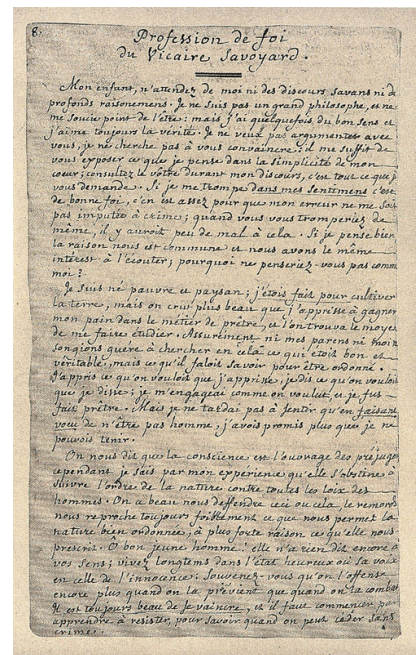 8.
Profession de foi
du Vicaire Savoyard.
Mon enfant, n'attendez de moi ni des discours savans ni de
profonds raisonemens. Je ne suis pas un grand philosophe, et ne
me soucie point de l'être: mais j'ai quelquefois du bon sens et
j'aime toujours la vérité. Je ne veux pas argumenter avec
vous, je ne cherche pas à vous convaincre; il me suffit de
vous exposer ce que je pense dans la simplicité de mon
coeur; consultez le vôtre durant mon discours, c'est tout ce que j
vous demande. Si je me trompe dans mes sentimens c'est
de bonne foi, c'en est assez pour que mon erreur ne me soit
pas imputée à crime; quand vous vous tromperiez de
même, il y auroit peu de mal à cela. Si je pense bien
la raison nous est commune et nous avons le même
intérest à l'écouter; pourquoi ne penseriez-vous pas comm
moi?
Je suis né pauvre et paysan; j'étois fait pour cultiver
la terre, mais on crut plus beau que j'apprisse à gagner
mon pain dans le métier de prêtre, et l'on trouva le moyen
de me faire étudier. Assurément ni mes parens ni moi
songions guère à chercher en cela ce qui étoit bon et
véritable, mais ce qu'il faloit savoir pour être ordonné.
J'appris ce qu'on vouloit que j'apprisse, je dis ce qu'on vouloit
que je disse; je m'engageai comme on voulut, et je fus
fait prêtre. Mais je ne tardai pas à sentir qu'en faisant
voeu de n'être pas homme, j'avois promis plus que je ne
pouvois tenir.
On nous dit que la conscience est l'ouvrage des préjugés
cependant je sais par mon expérience qu'elle s'obstine à
suivre l'ordre de la nature contre toutes les loix des
hommes. On a beau nous deffendre ceci ou cela, le remord
nous reproche toujours foiblement ce que nous permet la
nature bien ordonnée, à plus forte raison ce qu'elle nous
prescrit. O bon jeune homme! elle n'a rien dit encore à
vos sens; vivez longtems dans l'état heureux où sa voix
est celle de l'innocence. Souvenez-vous qu'on l'offense
encore plus quand on la prévient que quand on la combat
Il est toujours beau de se vaincre, et il faut commencer par
apprendre à resister, pour savoir quand on peut céder sans
crime.